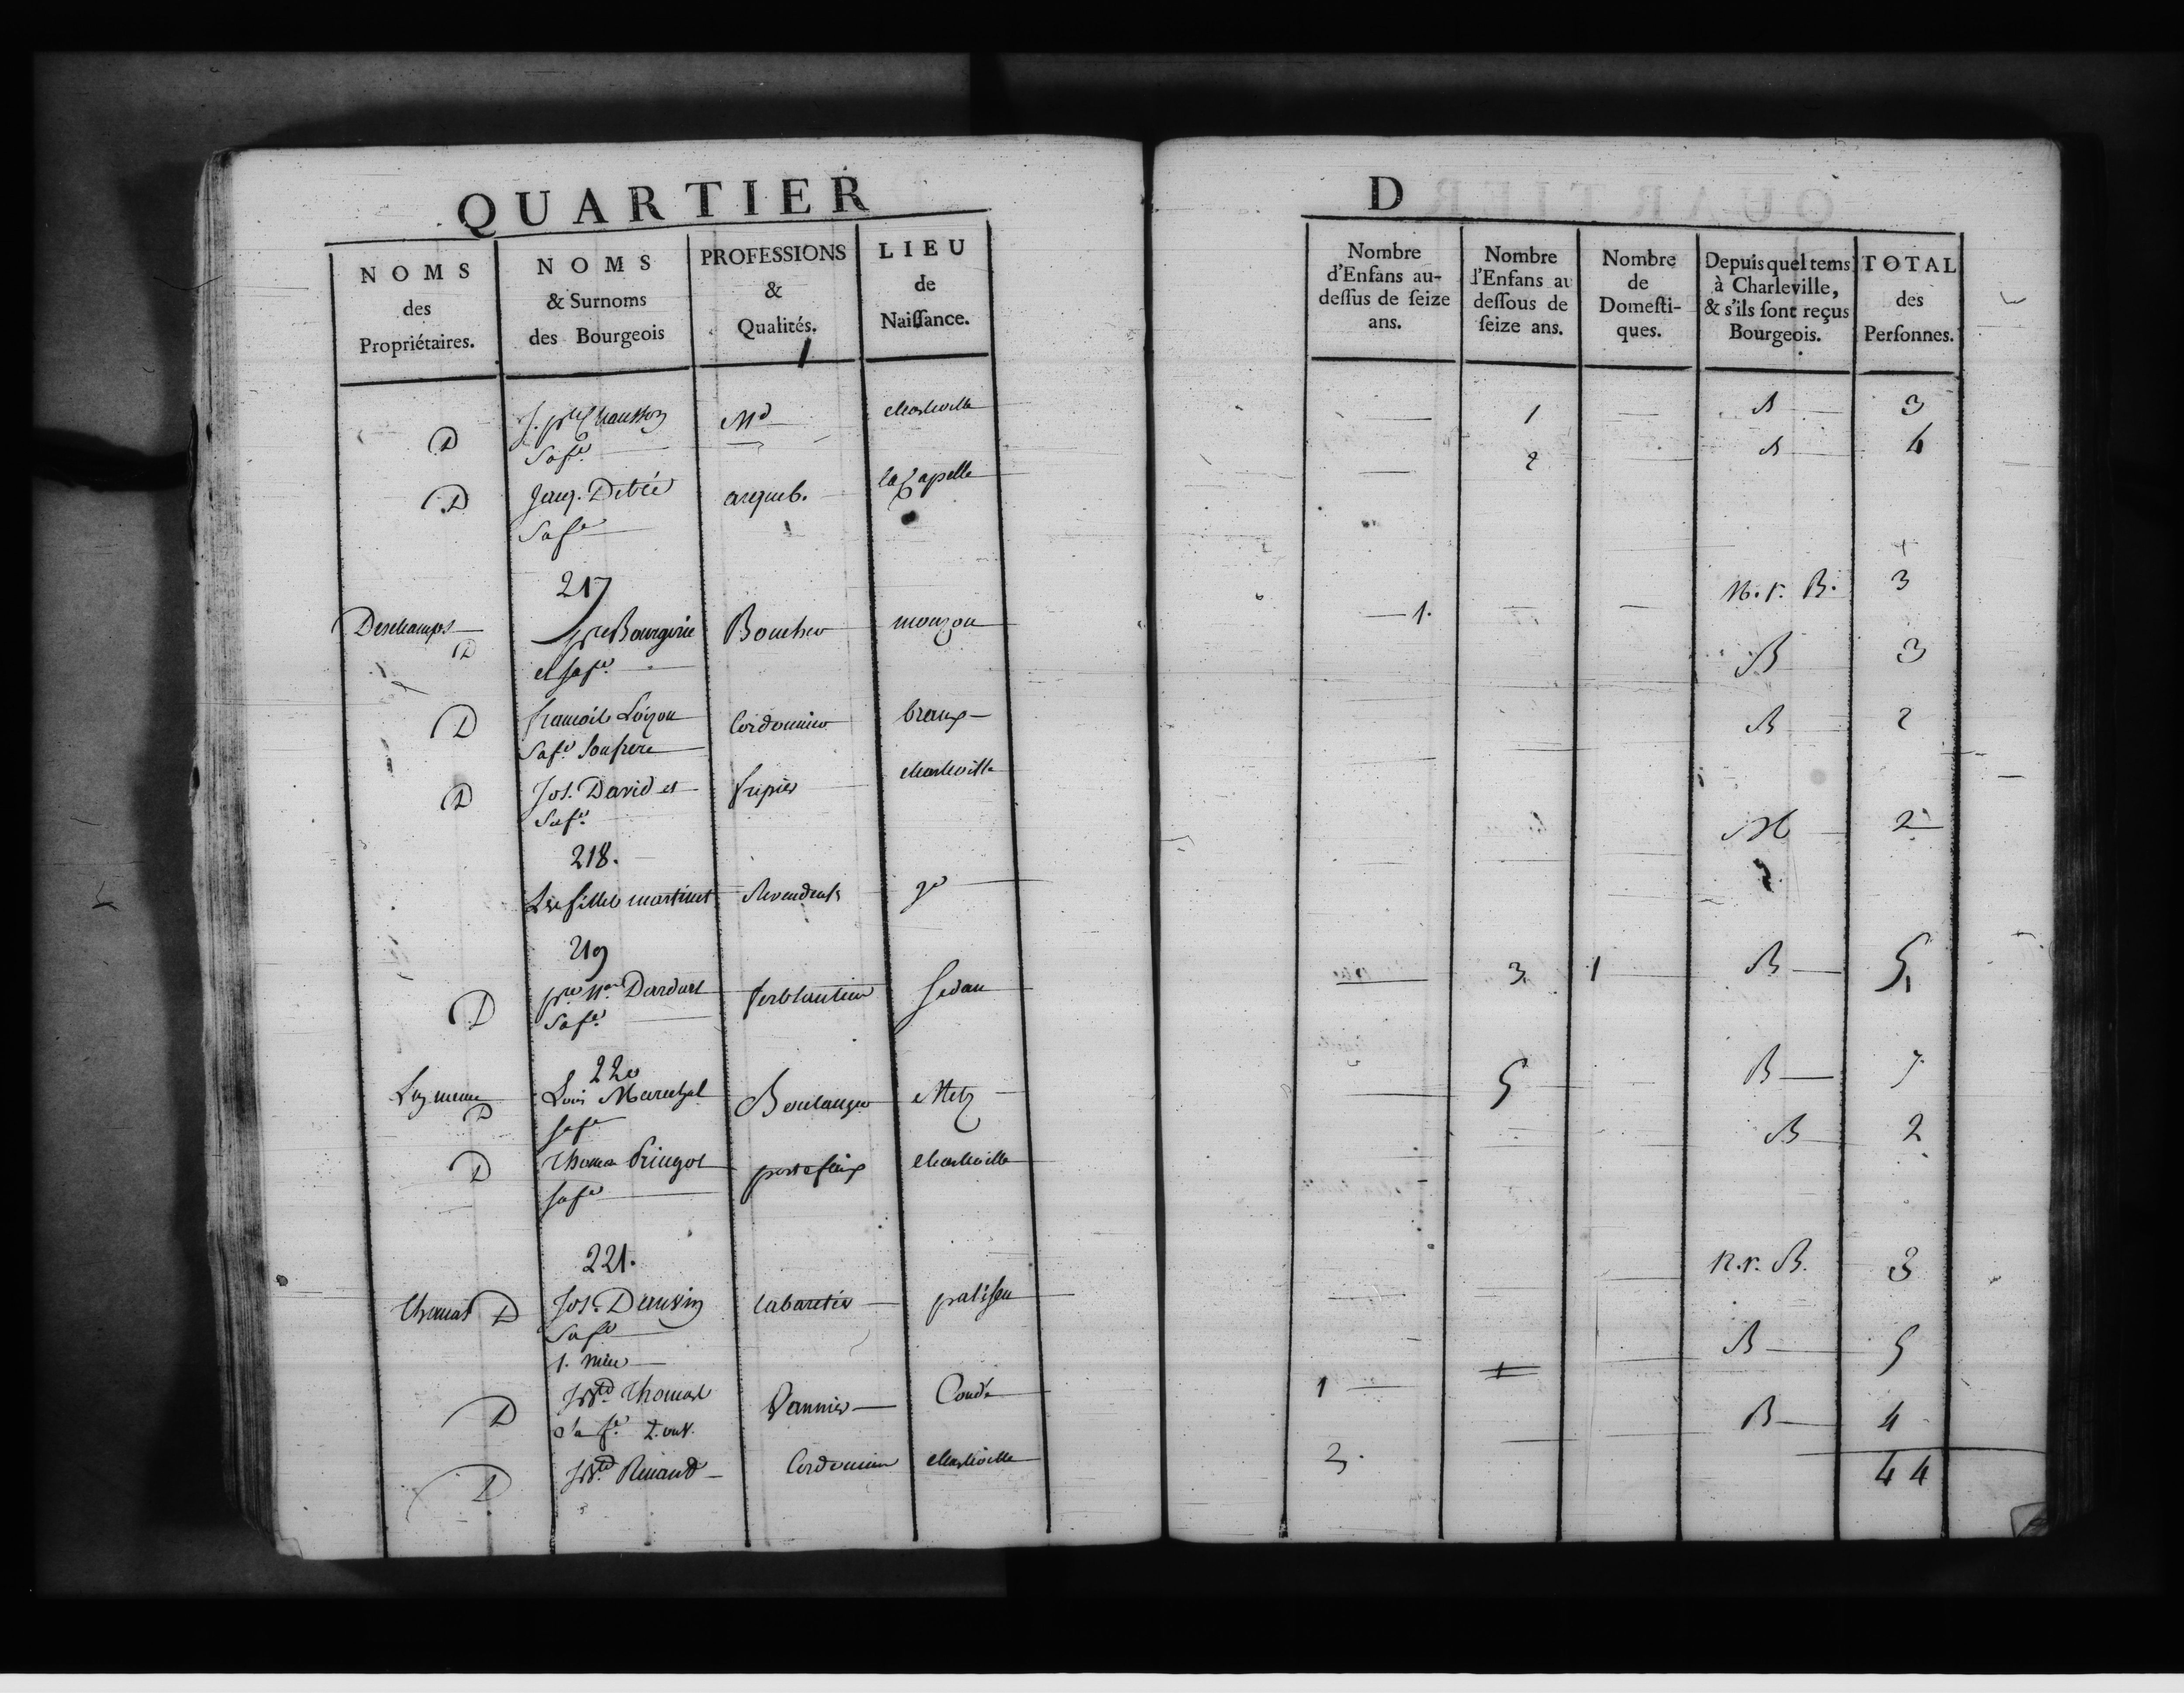 QUARTIER
NOMS
des
Propriétaires.
NOMS
& Surnoms
des Bourgeois
PROFESSIONS
&
Qualités.
LIEU
de
Naissance.
D J. pre Chausson Md charleville
Sa fe
D Jacq. Debié arqueb. la Capelle
Sa fe
217
Deschamps D pre Bourgerie Boucher mouzon
et sa fe
D francois Loizon Cordonnier braux
Sa fe son frere
D Jos. David et fripier charleville
Sa fe
218.
Les filles martinet Revendeuses
219
D pre Nas Dardart ferblantier Sedan
Sa fe
220
Luy meme D Louis Marechal Boulanger Metz
sa fe
D Thomas pringot portefaix charleville
sa fe
221.
Thomas D Jos. Dauvin Cabaretier paliseu
Sa fe
1. niece
D Thomas Vannier Condé
sa fe 2. ouv.
D Renaud Cordonnier charleville
D
Nombre
d'Enfans au-
dessus de seize
ans.
Nombre
d'Enfans au
dessous de
seize ans.
Nombre
de
Domesti-
ques.
Depuis quel tems
à Charleville,
& s'ils sont reçus
Bourgeois.
TOTAL
des
Personnes.
1 B 3
2 B 4
1. N. r. B. 3
B 3
B 2
N 2
3 1 B 5
5 B 7
B 2
n. r. B. 3
1 1 B 5
3. B 4
44